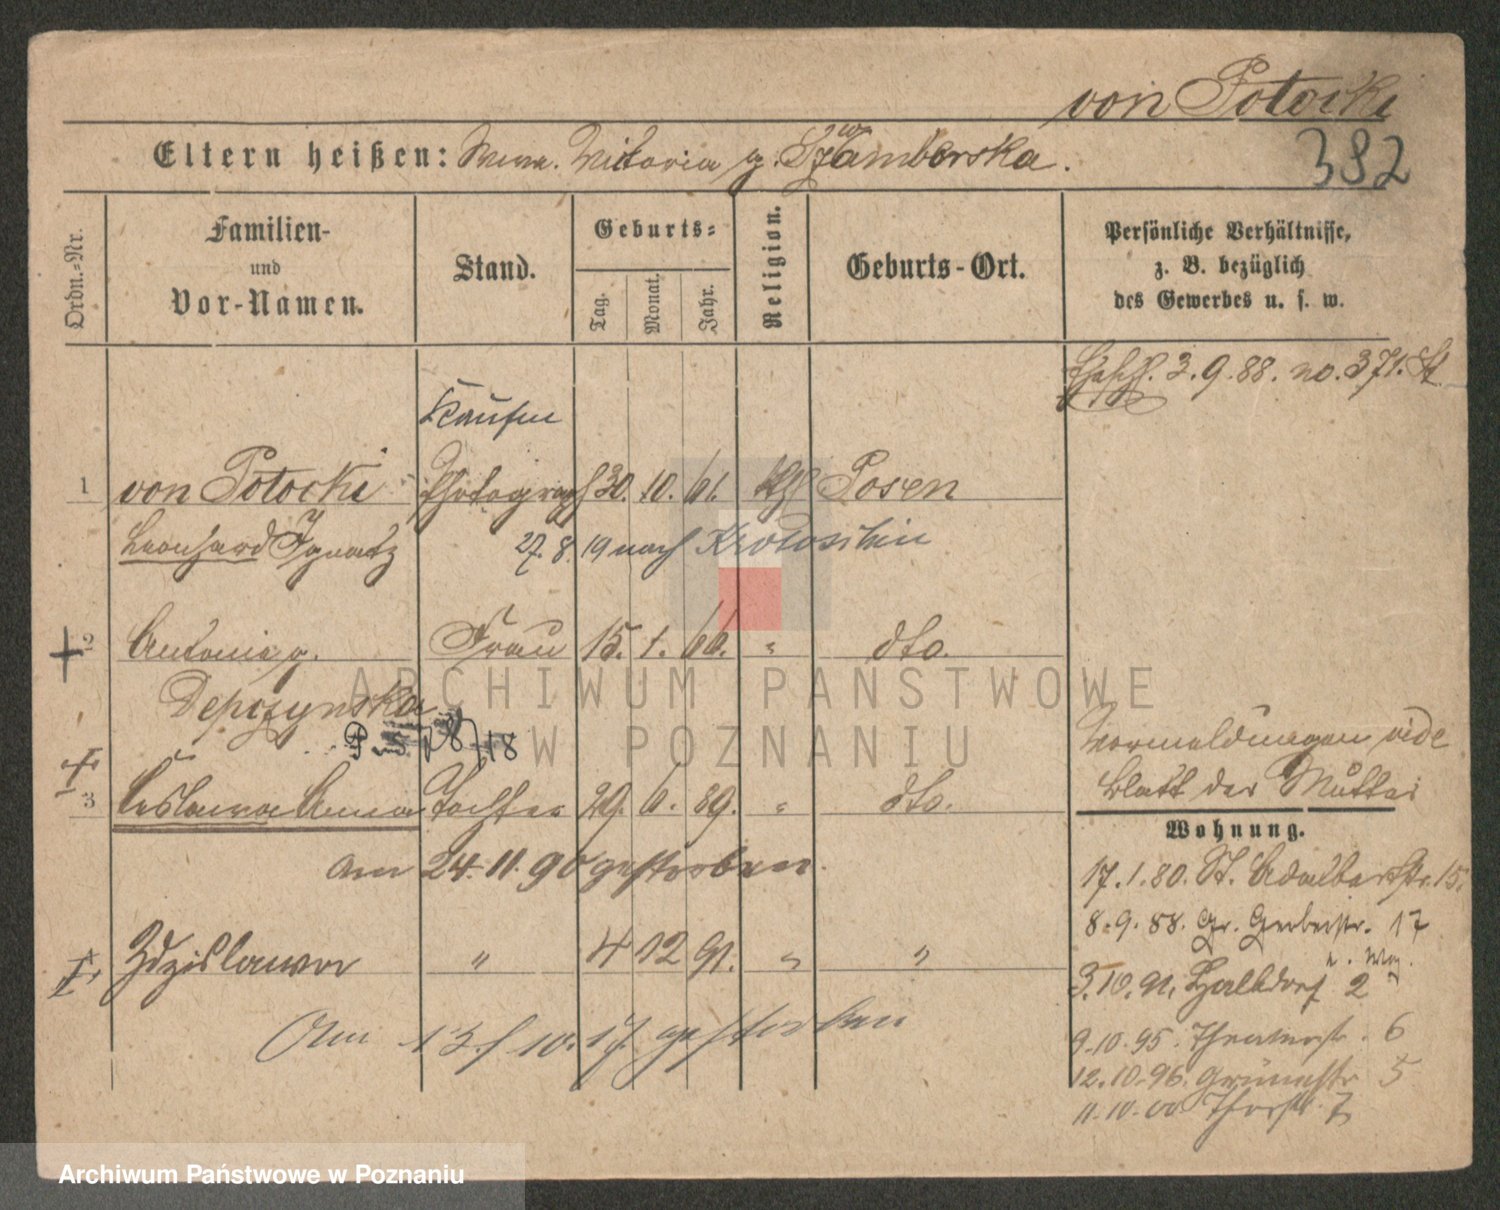 von Potocki
382
Eltern heißen: Wwe. Victoria g. Szamborska.
Ordn.-Nr.
Familien-
und
Vor-Namen.
Stand.
Geburts-
Tag. Monat. Jahr.
Religion.
Geburts-Ort.
Persönliche Verhältnisse,
z. B. bezüglich
des Gewerbes u. s. w.
3.9.88. no. 371.
Kaufm
1 von Potocki Photograph 30. 10. 61. kth Posen
Leonhard Ignatz 27. 8. 19 nach Krotoschin
2 Antonie g. Frau 15. 1. 66. " dto.
Depczynska
18
3 Ceslawa Anna Tochter 29. 6. 89. " dto.
am 24. 11. 90 gestorben.
Zdzislawa " 4 12 91. " "
Am 13/10. 17 gestorben
Vormeldungen vide
Blatt der Mutter
Wohnung.
17. 1. 80. St. Adalbertstr. 15.
8. 9. 88. Gr. Gerberstr. 17
3. 10. 91. Halbdorf 2
9. 10. 95. Theaterstr. 6
12. 10. 96. Grünestr 5
11. 10. 00 Thorstr. 7
ARCHIWUM PAŃSTWOWE
W POZNANIU
Archiwum Państwowe w Poznaniu